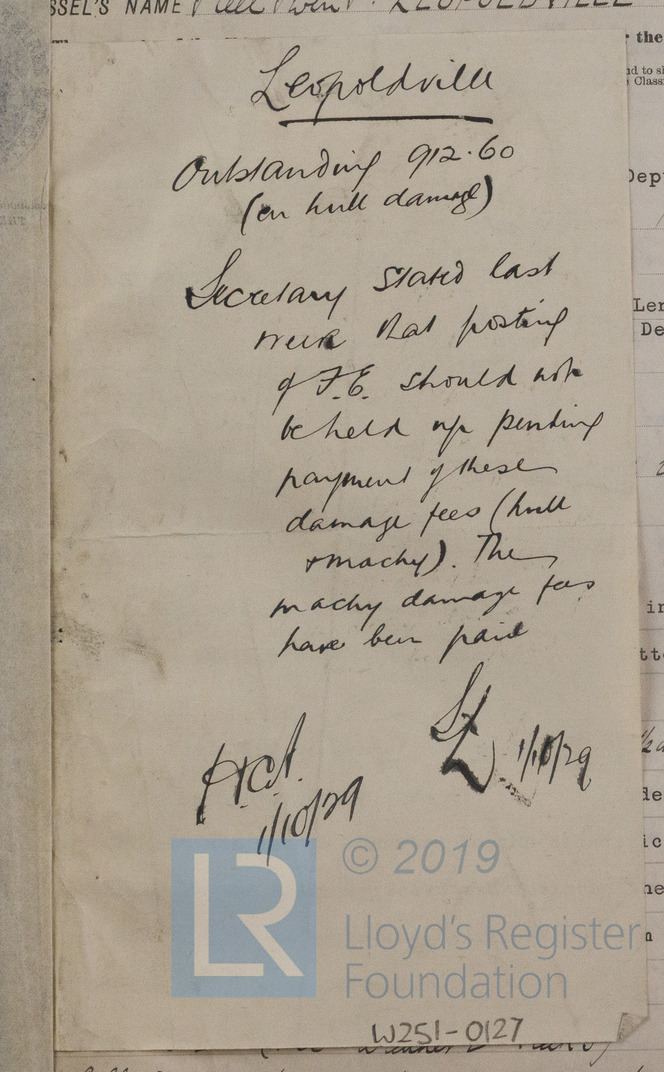 SSEL'S NAME LEOPOLDVILLE
the
Leopoldville
Outstanding 912.60
(on hull damage)
Secretary stated last
week that posting
of F.E. should not
be held up pending
payment of these
damage fees (hull
+ machy). The
machy damage fees
have been paid
1/10/29
H.C.A.
1/10/29
LR
© 2019
Lloyd's Register
Foundation
W251-0127